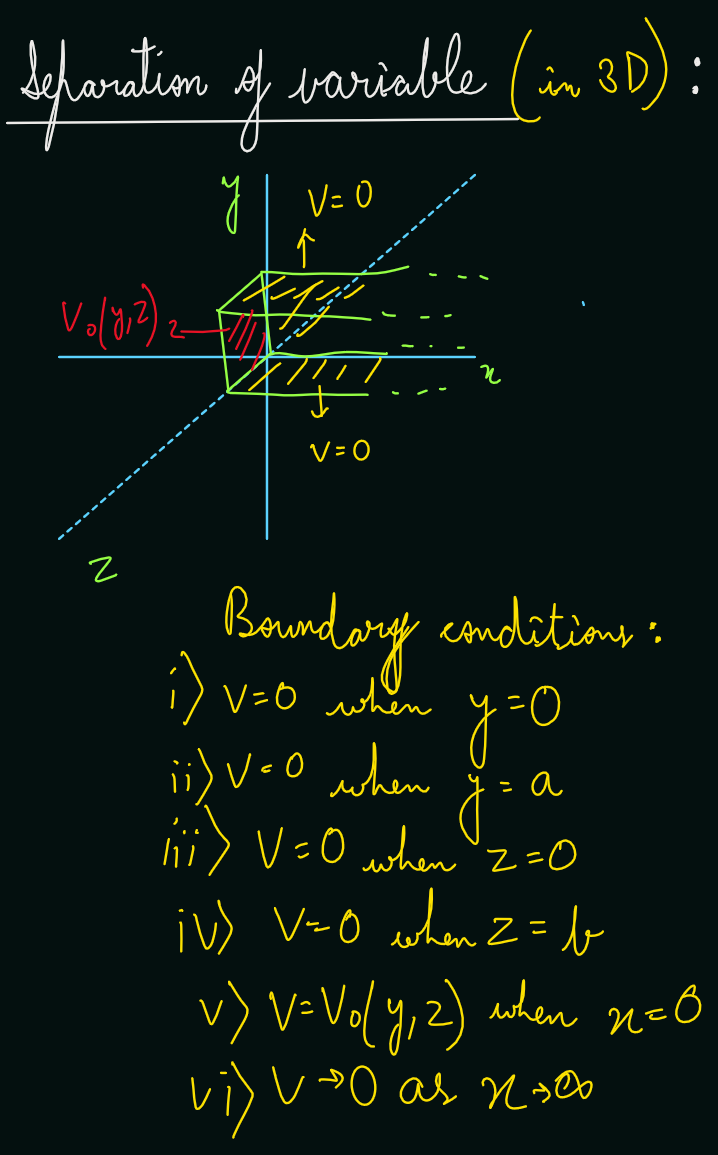 Separation of variable (in 3D) :
y
V=0
V₀(y,z)
z
x
V=0
z
Boundary conditions :
i) V=0 when y=0
ii) V=0 when y=a
iii) V=0 when z=0
iv) V=0 when z=b
v) V=V₀(y,z) when x=0
vi) V→0 as x→∞